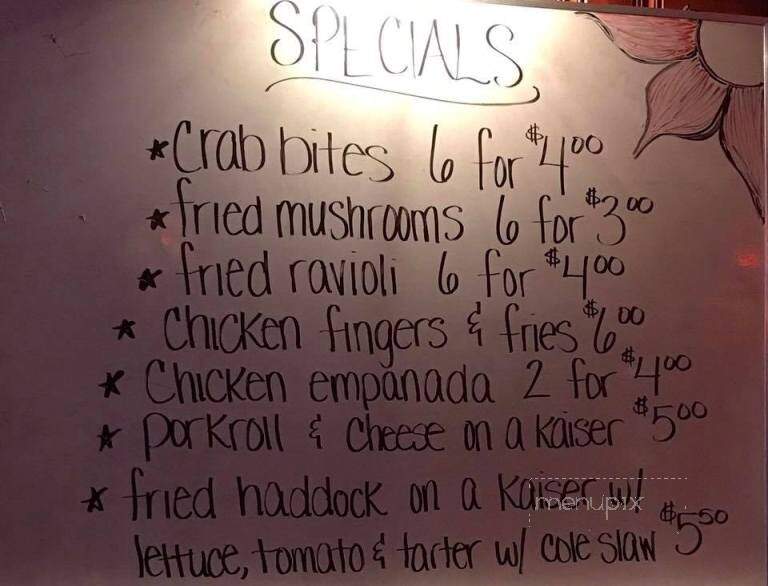 SPECIALS
* Crab bites 6 for $4.00
* fried mushrooms 6 for $3.00
* fried ravioli 6 for $4.00
* Chicken fingers & fries $6.00
* Chicken empanada 2 for $4.00
* porkroll & cheese on a kaiser $5.00
* fried haddock on a kaiser w/
lettuce, tomato & tarter w/ cole slaw $5.50
menupix